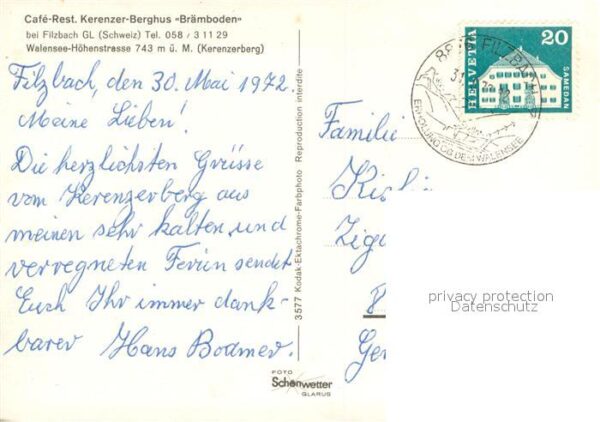 Café-Rest. Kerenzer-Berghus «Brämboden»
bei Filzbach GL (Schweiz) Tel. 058 / 3 11 29
Walensee-Höhenstrasse 743 m ü. M. (Kerenzerberg)
Filzbach, den 30. Mai 1972.
Meine Lieben!
Die herzlichsten Grüsse
vom Kerenzerberg aus
meinen sehr kalten und
verregneten Ferien sendet
Euch Ihr immer dank-
barer Hans Bodmer.
3577 Kodak-Ektachrome-Farbphoto Reproduction interdite
FOTO
Schönwetter
GLARUS
FILZBACH
WALENSEE
HELVETIA
20
SAMEDAN
Familie
privacy protection
Datenschutz